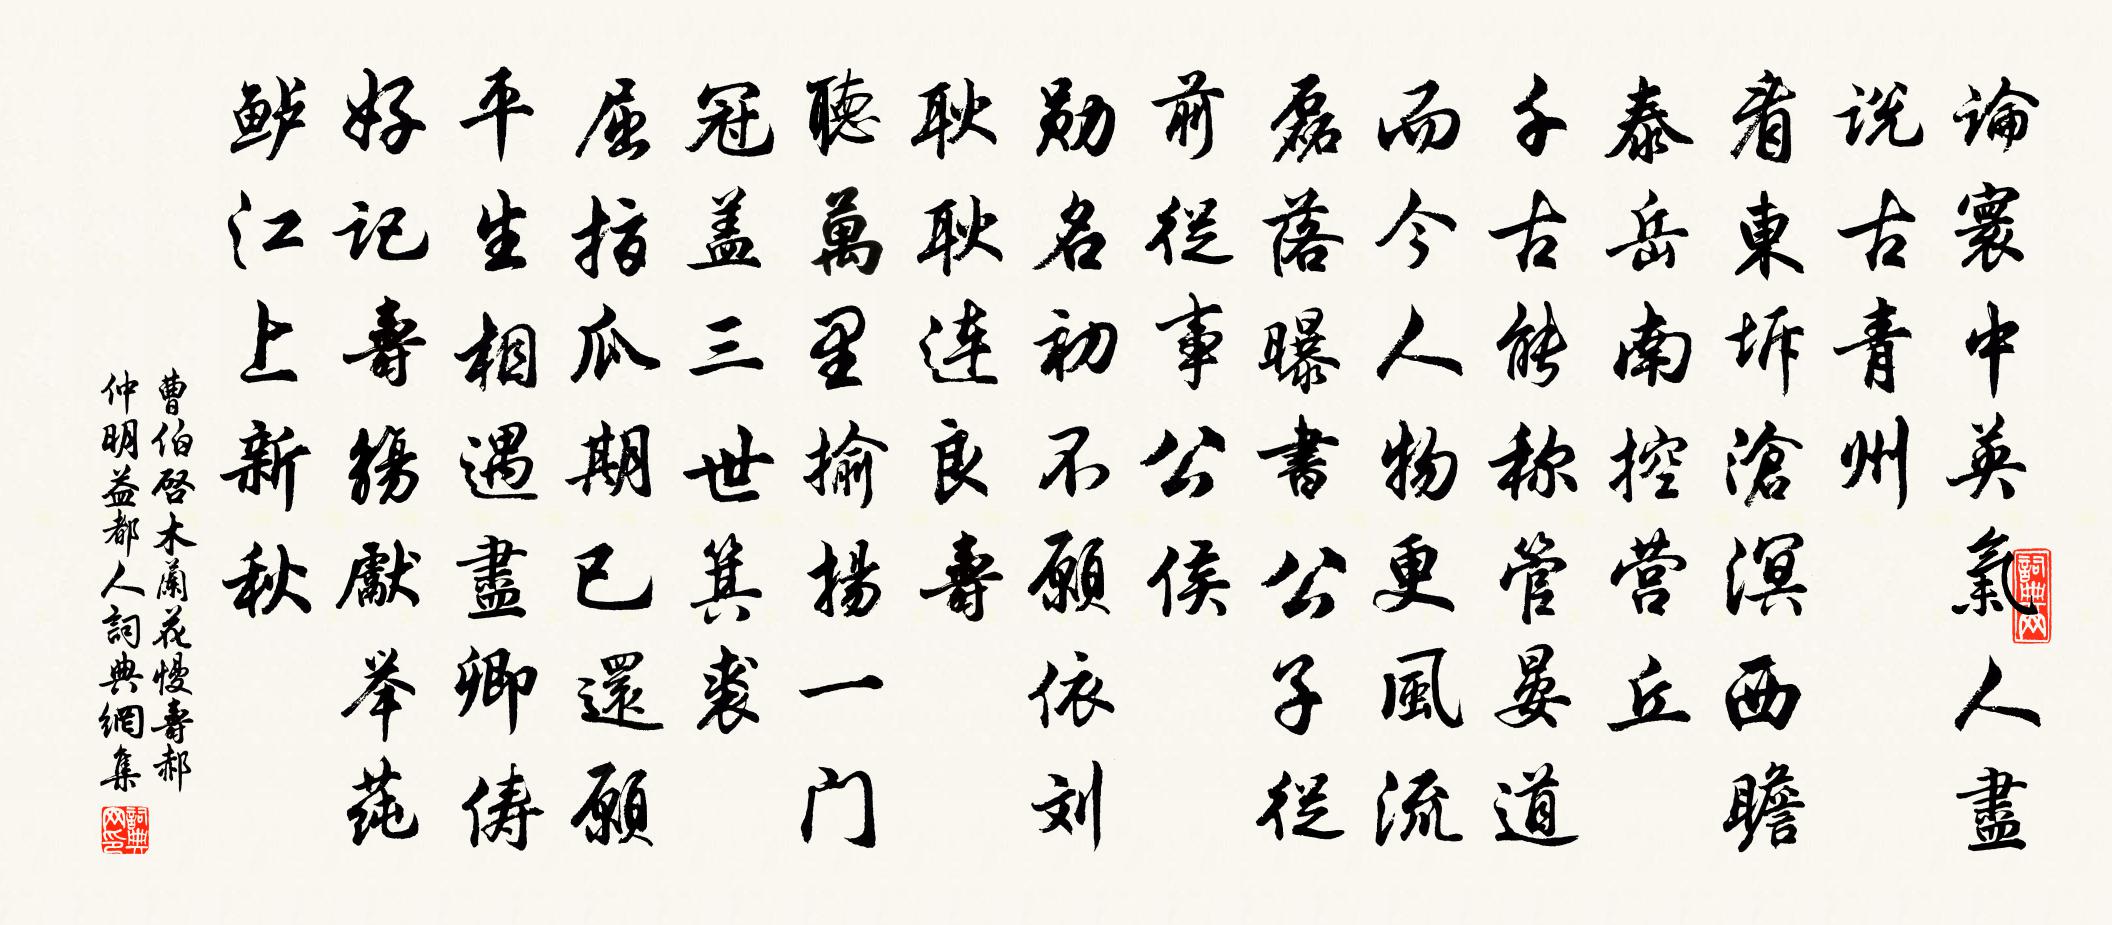 論寰中英氣人盡
説古青州
看東坼滄溟西瞻
泰岳南控营丘
千古能称管晏道
而今人物更風流
磊落曝書公子從
前從事公侯
勋名初不願依刘
耿耿连良壽
聽萬里揄揚一门
冠盖三世箕裘
屈指瓜期已還願
平生相遇盡卿俦
好記壽觴獻举莼
鲈江上新秋
曹伯啓木蘭花慢壽郝
仲明益都人詞典網集
詞典网
詞典网印